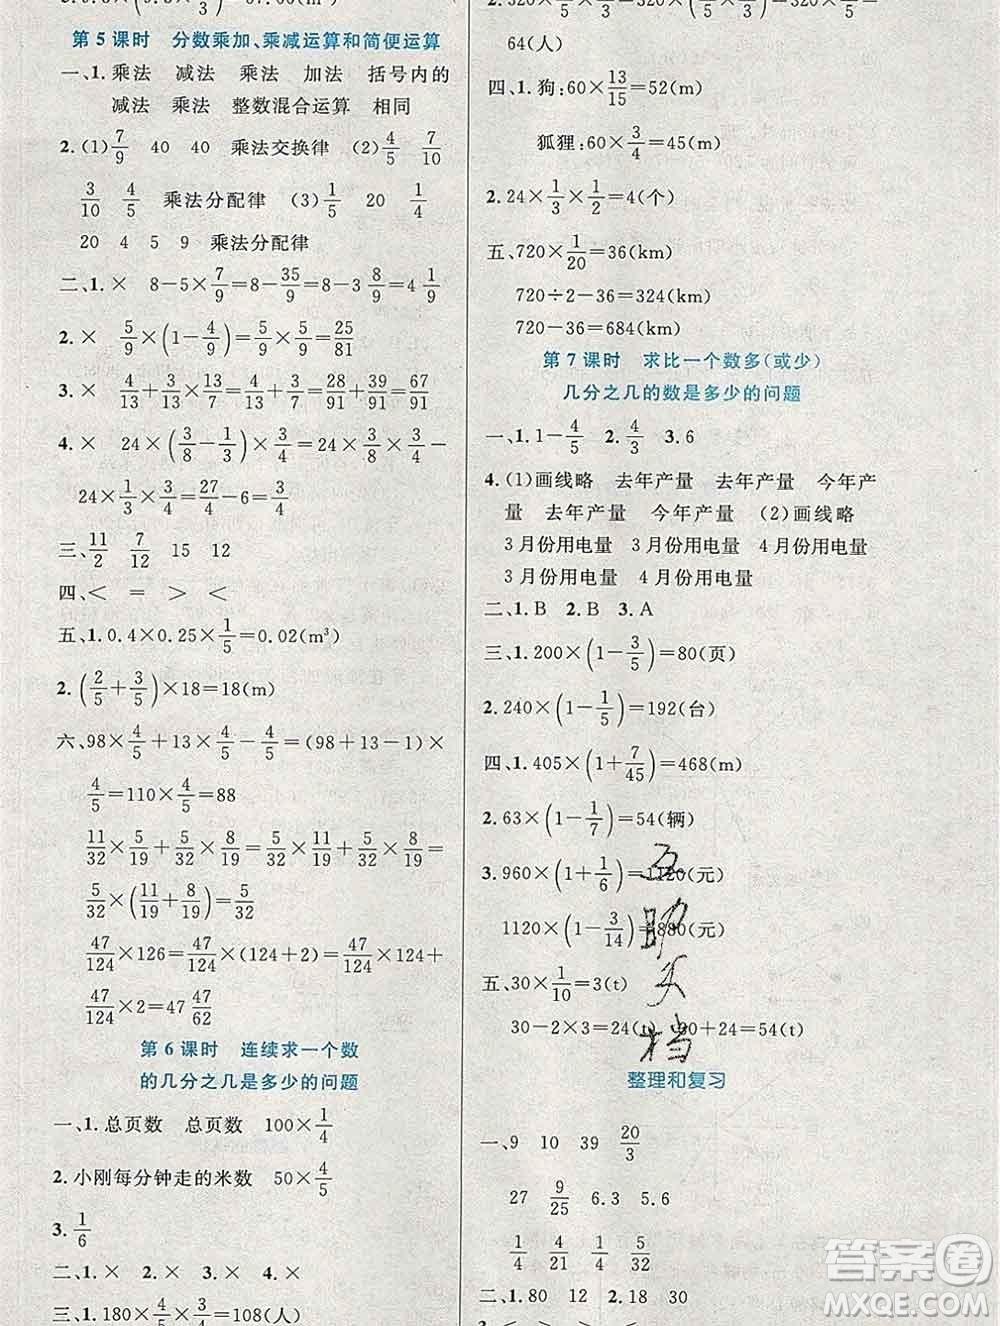 第5课时 分数乘加、乘减运算和简便运算
一、1. 乘法 减法 乘法 加法 括号内的
减法 乘法 整数混合运算 相同
2. (1) 7/9 40 40 乘法交换律 (2) 4/5 7/10
3/10 4/5 乘法分配律 (3) 1/5 20 1/4
20 4 5 9 乘法分配律
二、1. × 8-5×7/9=8-35/9=8-3 8/9=4 1/9
2. × 5/9×(1-4/9)=5/9×5/9=25/81
3. × 4/13+3/13×67/9=4/13+67/39=79/39
4. × 24×(3/8-1/3)×3/4=24×3/8×3/4-
24×1/3×3/4=27/4-6=3/4
三、11/2 7/12 15 12
四、< = > <
五、1. 0.4×0.25×1/5=0.02(m³)
2. (2/5+3/5)×18=18(m)
六、98×4/5+13×4/5-4/5=(98+13-1)×
4/5=110×4/5=88
11/32×5/19+5/32×8/19=5/32×11/19+5/32×8/19=
5/32×(11/19+8/19)=5/32
47/124×126=47/124×(124+2)=47/124×124+
47/124×2=47 47/62
第6课时 连续求一个数
的几分之几是多少的问题
一、1. 总页数 总页数 100×1/4
2. 小刚每分钟走的米数 50×4/5
3. 1/6
二、1. × 2. × 3. × 4. ×
三、1. 180×4/5×3/4=108(人)
64(人)
四、1. 狗:60×13/15=52(m)
狐狸:60×3/4=45(m)
2. 24×1/3×1/2=4(个)
五、720×1/20=36(km)
720÷2-36=324(km)
720-36=684(km)
第7课时 求比一个数多(或少)
几分之几的数是多少的问题
一、1. 1-4/5 2. 4/3 3. 6
4. (1)画线略 去年产量 去年产量 今年产
量 去年产量 今年产量 (2)画线略
3月份用电量 3月份用电量 4月份用电量
3月份用电量 4月份用电量
二、1. B 2. B 3. A
三、1. 200×(1-3/5)=80(页)
2. 240×(1-1/5)=192(台)
四、1. 405×(1+7/45)=468(m)
2. 63×(1-1/7)=54(辆)
3. 960×(1+1/6)=1120(元)
1120×(1-3/14)=880(元)
五、30×1/10=3(t)
30-2×3=24(t) 30+24=54(t)
整理和复习
一、9 10 39 20/3
27 9/25 6.3 5.6
1/4 4/21 1/4 5/32
二、1. 80 12 2. 18 30
答案圈
MXQE.COM